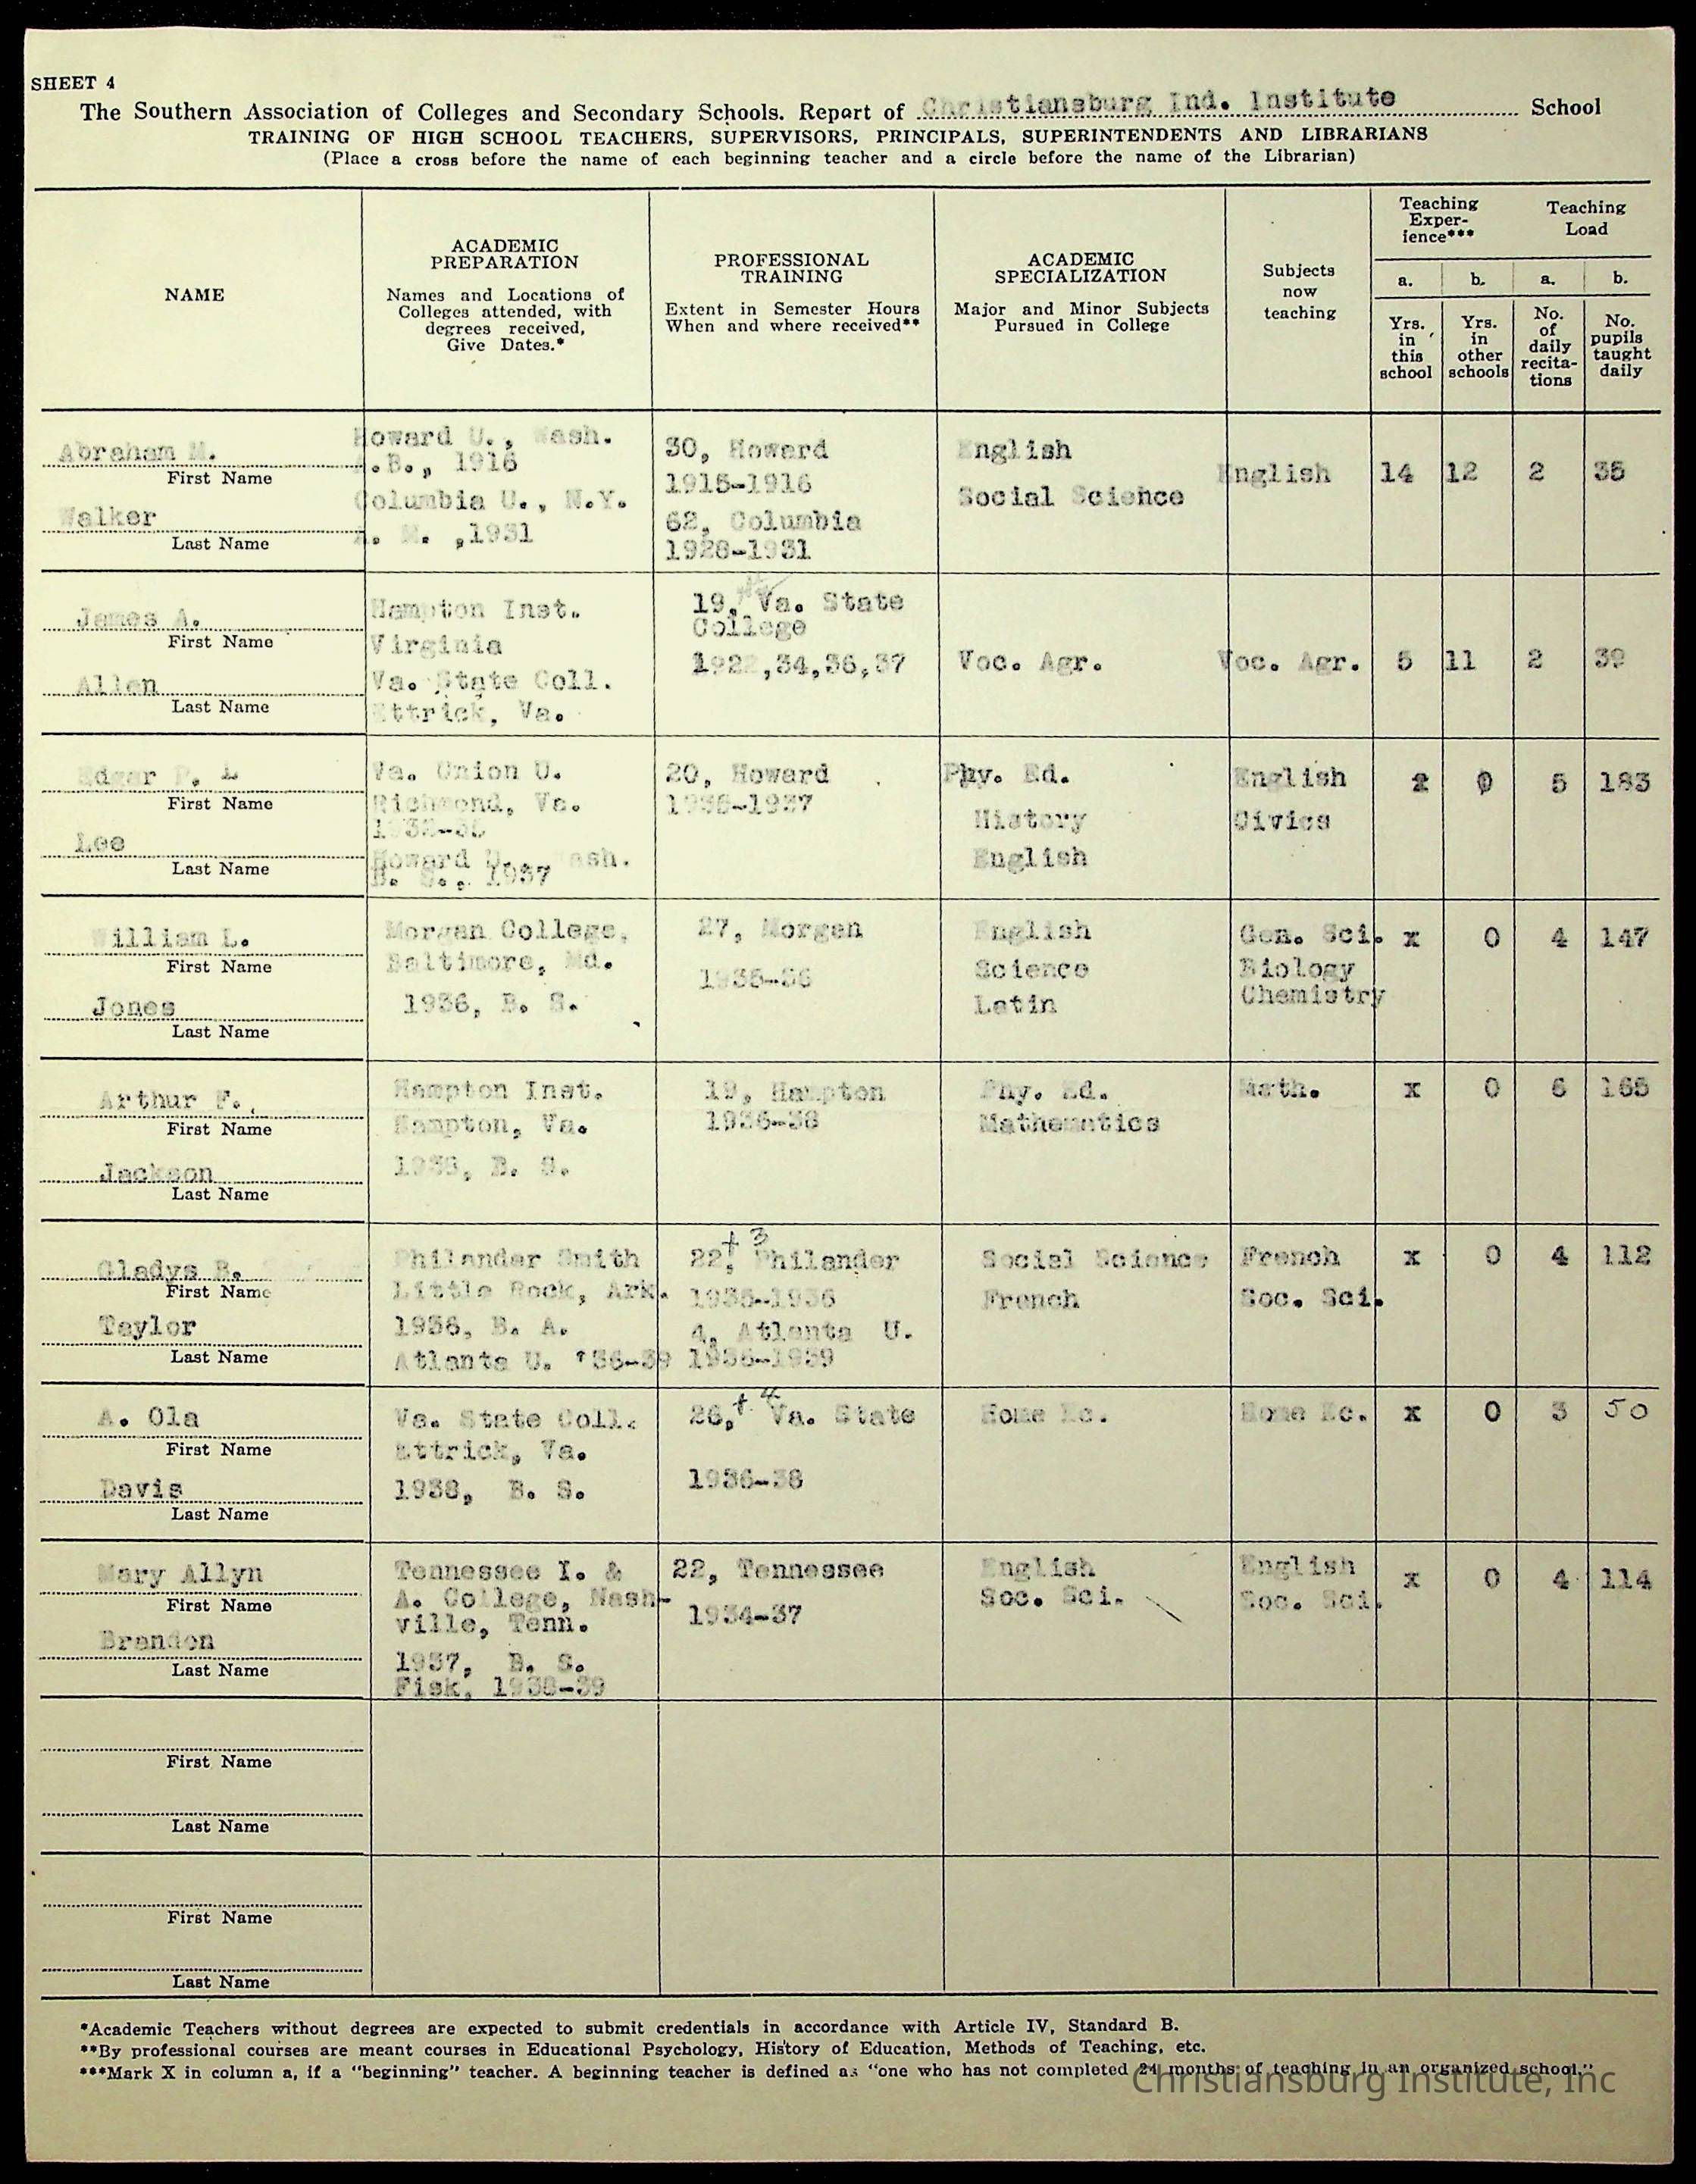 SHEET 4
The Southern Association of Colleges and Secondary Schools. Report of Christiansburg Ind. Institute School
TRAINING OF HIGH SCHOOL TEACHERS, SUPERVISORS, PRINCIPALS, SUPERINTENDENTS AND LIBRARIANS
(Place a cross before the name of each beginning teacher and a circle before the name of the Librarian)
NAME
ACADEMIC
PREPARATION
Names and Locations of
Colleges attended, with
degrees received,
Give Dates.*
PROFESSIONAL
TRAINING
Extent in Semester Hours
When and where received**
ACADEMIC
SPECIALIZATION
Major and Minor Subjects
Pursued in College
Subjects
now
teaching
Teaching
Exper-
ience***
Teaching
Load
a. b. a. b.
Yrs.
in
this
school
Yrs.
in
other
schools
No.
of
daily
recita-
tions
No.
pupils
taught
daily
Abraham M.
First Name
Walker
Last Name
Howard U., Wash.
A.B., 1916
Columbia U., N.Y.
A. M. ,1931
30, Howard
1915-1916
62, Columbia
1928-1931
English
Social Science
English
14 12 2 35
James A.
First Name
Allen
Last Name
Hampton Inst.
Virginia
Va. State Coll.
Ettrick, Va.
19, Va. State
College
,34,36,37
Voc. Agr.
Voc. Agr.
5 11 2 39
Edgar
First Name
Lee
Last Name
Va. Union U.
Richmond, Va.
Howard U., Wash.
B. S., 1937
20, Howard
1936-1937
Phy. Ed.
History
English
English
Civics
0 5 183
William L.
First Name
Jones
Last Name
Morgan College,
Baltimore, Md.
1936, B. S.
27, Morgan
1935-36
English
Science
Latin
Gen. Sci.
Biology
Chemistry
x 0 4 147
Arthur F.
First Name
Jackson
Last Name
Hampton Inst.
Hampton, Va.
B. S.
19, Hampton
1936-38
Phy. Ed.
Mathematics
Math.
x 0 6 165
Gladys B.
First Name
Taylor
Last Name
Philander Smith
Little Rock, Ark.
1936, B. A.
Atlanta U. '36-39
22, + 3 Philander
1935-1936
4, Atlanta U.
1936-1939
Social Science
French
French
Soc. Sci.
x 0 4 112
A. Ola
First Name
Davis
Last Name
Va. State Coll.
Ettrick, Va.
1938, B. S.
26, + 4 Va. State
1936-38
Home Ec.
Home Ec.
x 0 3 50
Mary Allyn
First Name
Brandon
Last Name
Tennessee I. &
A. College, Nash-
ville, Tenn.
1937, B. S.
Fisk, 1938-39
22, Tennessee
1934-37
English
Soc. Sci.
English
Soc. Sci.
x 0 4 114
First Name
Last Name
First Name
Last Name
*Academic Teachers without degrees are expected to submit credentials in accordance with Article IV, Standard B.
**By professional courses are meant courses in Educational Psychology, History of Education, Methods of Teaching, etc.
***Mark X in column a, if a "beginning" teacher. A beginning teacher is defined as "one who has not completed 24 months of teaching in an organized school."
Christiansburg Institute, Inc